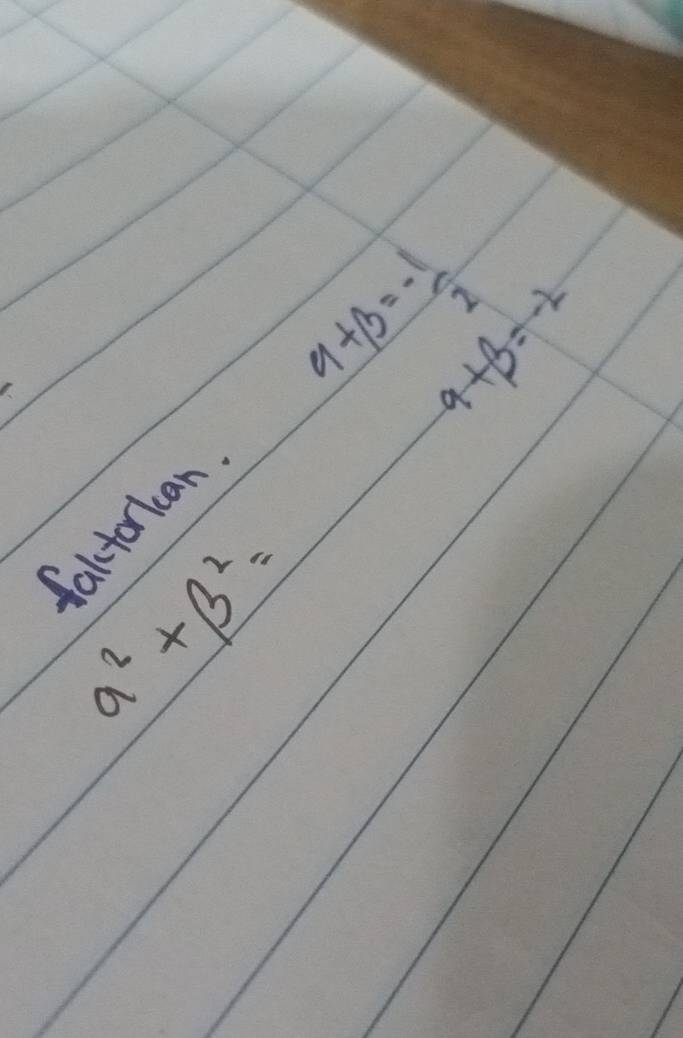 faktorkan.
a² + β² =
a + β = -1/2
a + β = -2